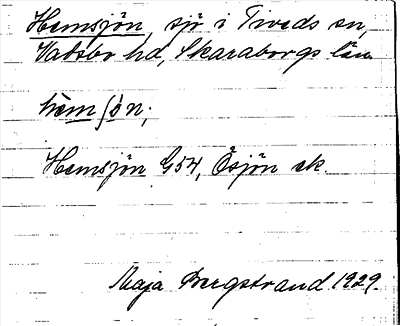 Hemsjön, sjö i Tiveds sn,
Vadsbo hd, Skaraborgs län.
hèmʃön;
Hemsjön G54, Ösjön ek.
Maja Bergstrand 1929.